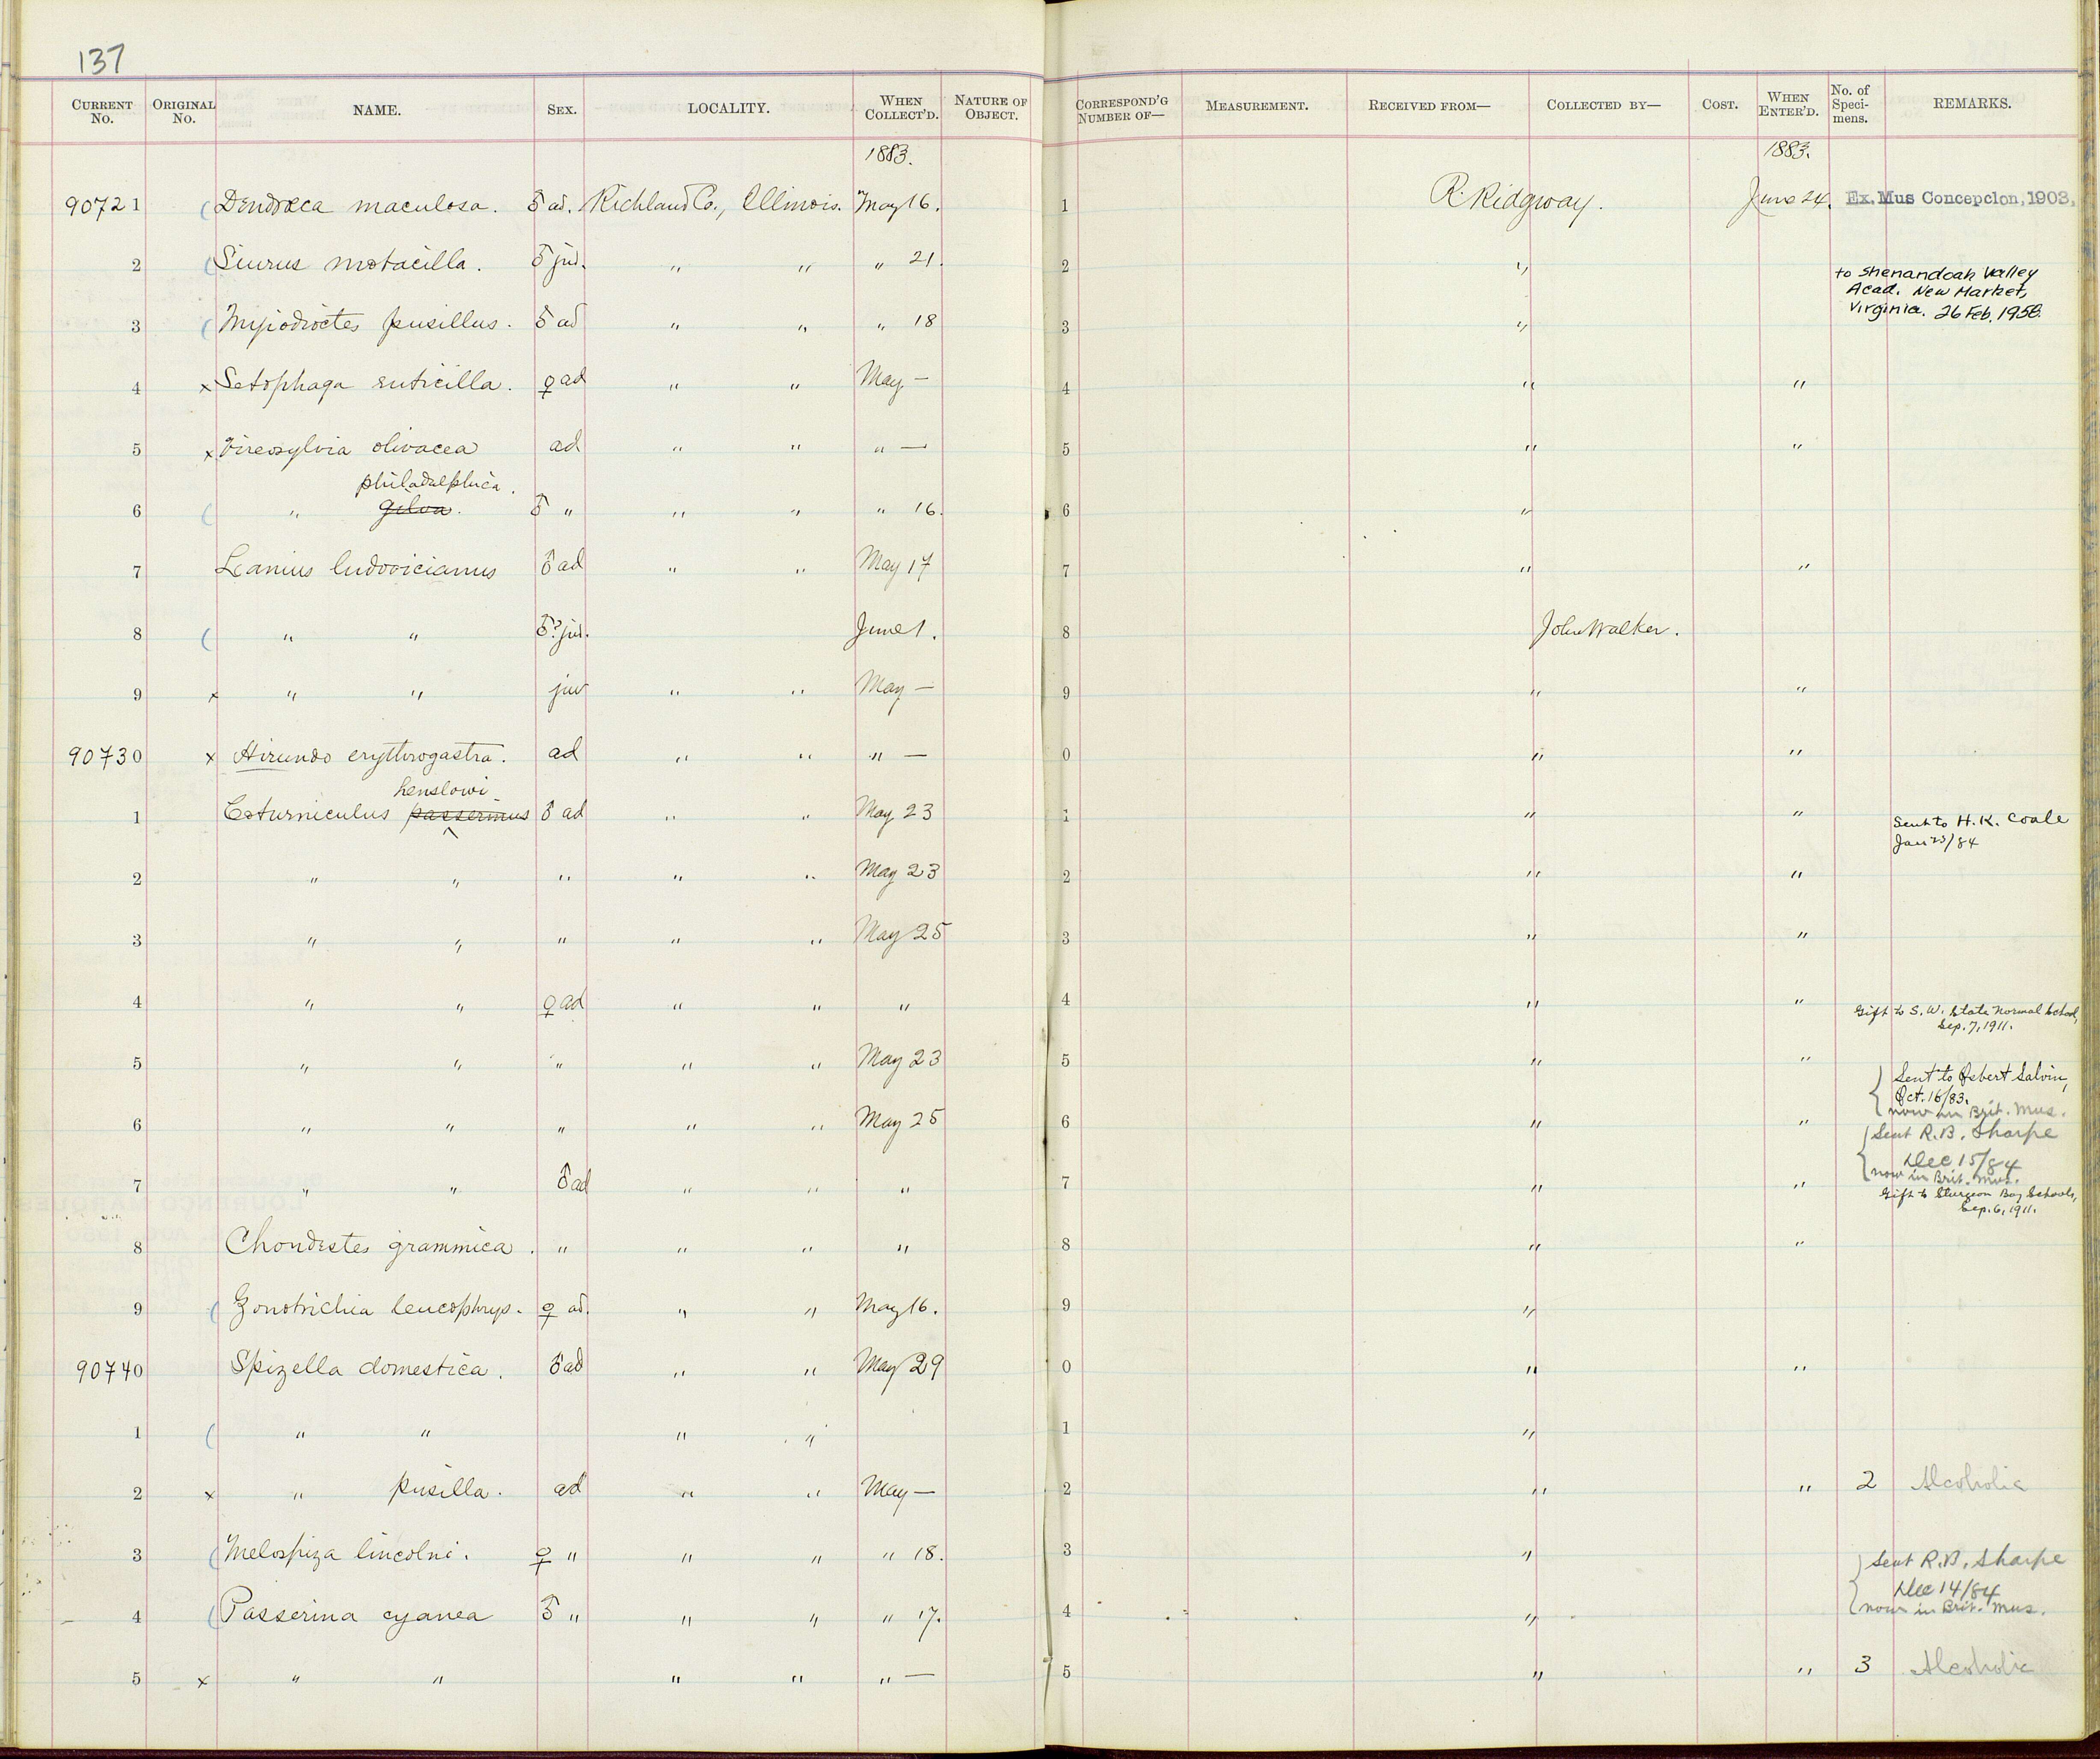 137
CURRENT No. ORIGINAL No. NAME. SEX. LOCALITY. WHEN COLLECT'D. NATURE OF OBJECT. CORRESPOND'G NUMBER OF— MEASUREMENT. RECEIVED FROM— COLLECTED BY— COST. WHEN ENTER'D. No. of Speci-mens. REMARKS.
1883. 1883.
90721 ( Dendrœca maculosa. ♂ ad. Richland Co., Illinois. May 16. 1 R. Ridgway. June 24. Ex. Mus Concepcion, 1903,
2 ( Siurus motacilla. ♂ juv. " " " 21. 2 "
to Shenandoah Valley
Acad. New Market,
Virginia. 26 Feb. 1958.
3 ( Myiodioctes pusillus. ♂ ad " " " 18 3 "
4 x Setophaga ruticilla. ♀ ad " " May — 4 " "
5 x Vireosylvia olivacea ad " " " — 5 " "
philadelphica.
6 ( " gilva. ♂ " " " " 16. 6 "
7 Lanius ludovicianus ♂ ad " " May 17 7 " "
8 ( " " ♂? juv. June 1. 8 John Walker.
9 x " " juv " " May — 9 " "
90730 x Hirundo erythrogastra. ad " " " — 0 " "
henslowi
1 Coturniculus passerinus ♂ ad " " May 23 1 " " Sent to H. K. Coale
Jan 23/84
2 " " " " " May 23 2 " "
3 " " " " " May 25 3 " "
4 " " ♀ ad " " " 4 " " Gift to S. W. State Normal School,
Sep. 7, 1911.
5 " " " " " May 23 5 " " Sent to Osbert Salvin,
Oct. 16/83.
now in Brit. Mus.
6 " " " " " May 25 6 " " Sent R. B. Sharpe
Dec 15/84
now in Brit. Mus.
7 " " ♂ ad " " " 7 " " Gift to Sturgeon Bay Schools,
Sep. 6, 1911.
8 Chondestes grammica. " " " " 8 " "
9 ( Zonotrichia leucophrys. ♀ ad. " " May 16. 9 "
90740 Spizella domestica. ♂ ad " " May 29 0 " "
1 ( " " " " 1 "
2 x " pusilla. ad " " May — 2 " " 2 Alcoholic
3 ( Melospiza lincolni. ♀ " " " " 18. 3 " Sent R. B. Sharpe
Dec 14/84
now in Brit. Mus.
4 ( Passerina cyanea ♂ " " " " 17. 4 "
5 x " " " " " — 5 " " 3 Alcoholic